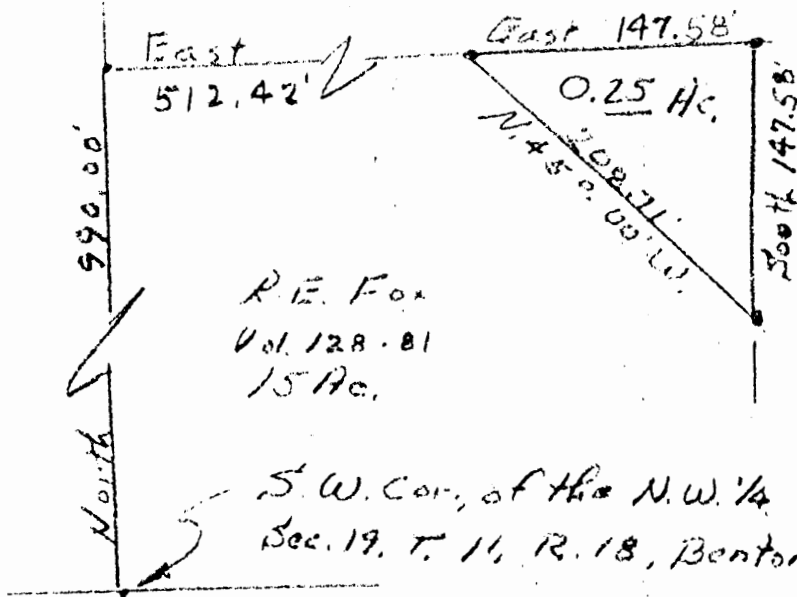 East
512.42'
East 147.58'
0.25 Ac.
South 147.58'
208.71'
N. 45°.00' W.
990.00'
North
R.E. Fox
Vol. 128 - 81
15 Ac.
S.W. Cor., of the N.W. 1/4
Sec. 19, T. 11, R. 18, Benton